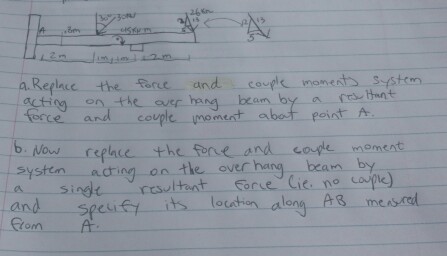 30KN
26KN
A
.3m
45KN·m
12 13
5
2m 1m 1m 2m
a. Replace the force and couple moments system
acting on the over hang beam by a resultant
force and couple moment abot point A.
b. Now replace the force and couple moment
system acting on the over hang beam by
a single resultant force (ie. no couple)
and specify its location along AB measured
from A.